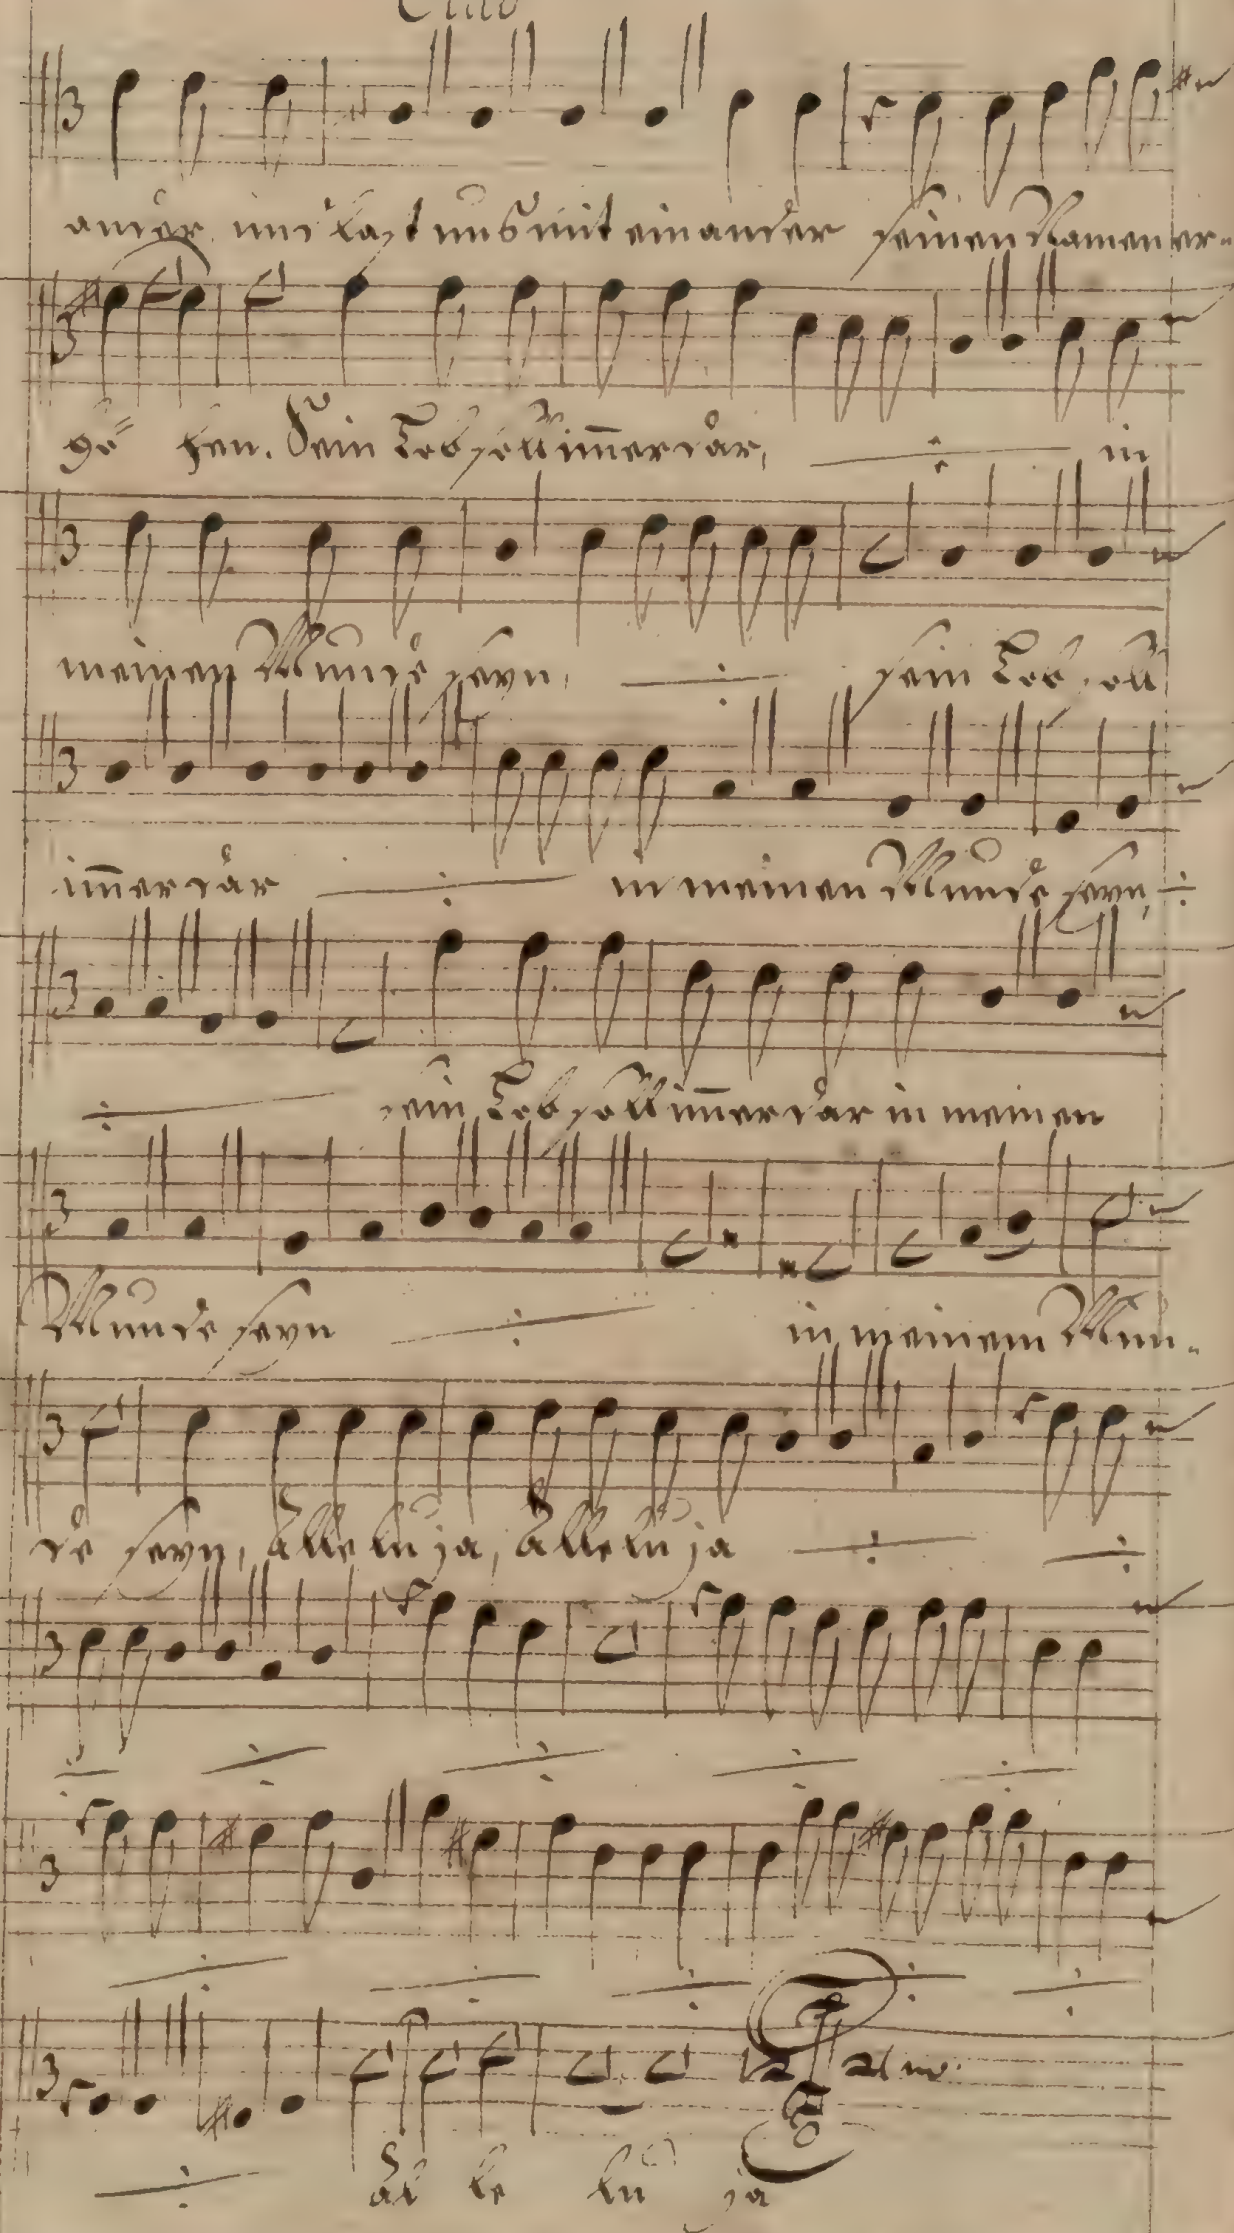 ander und last uns mit einander seinen Namen er-
hö= hen. Sein Lob soll im̅erdar, in
meinen Munde seyn, sein Lob soll
im̅erdar in meinen Munde seyn,
sein Lob soll im̅erdar in meinen
Munde seyn in meinem Mun-
de seyn, Alleluja, Alleluja
Al le lu ja